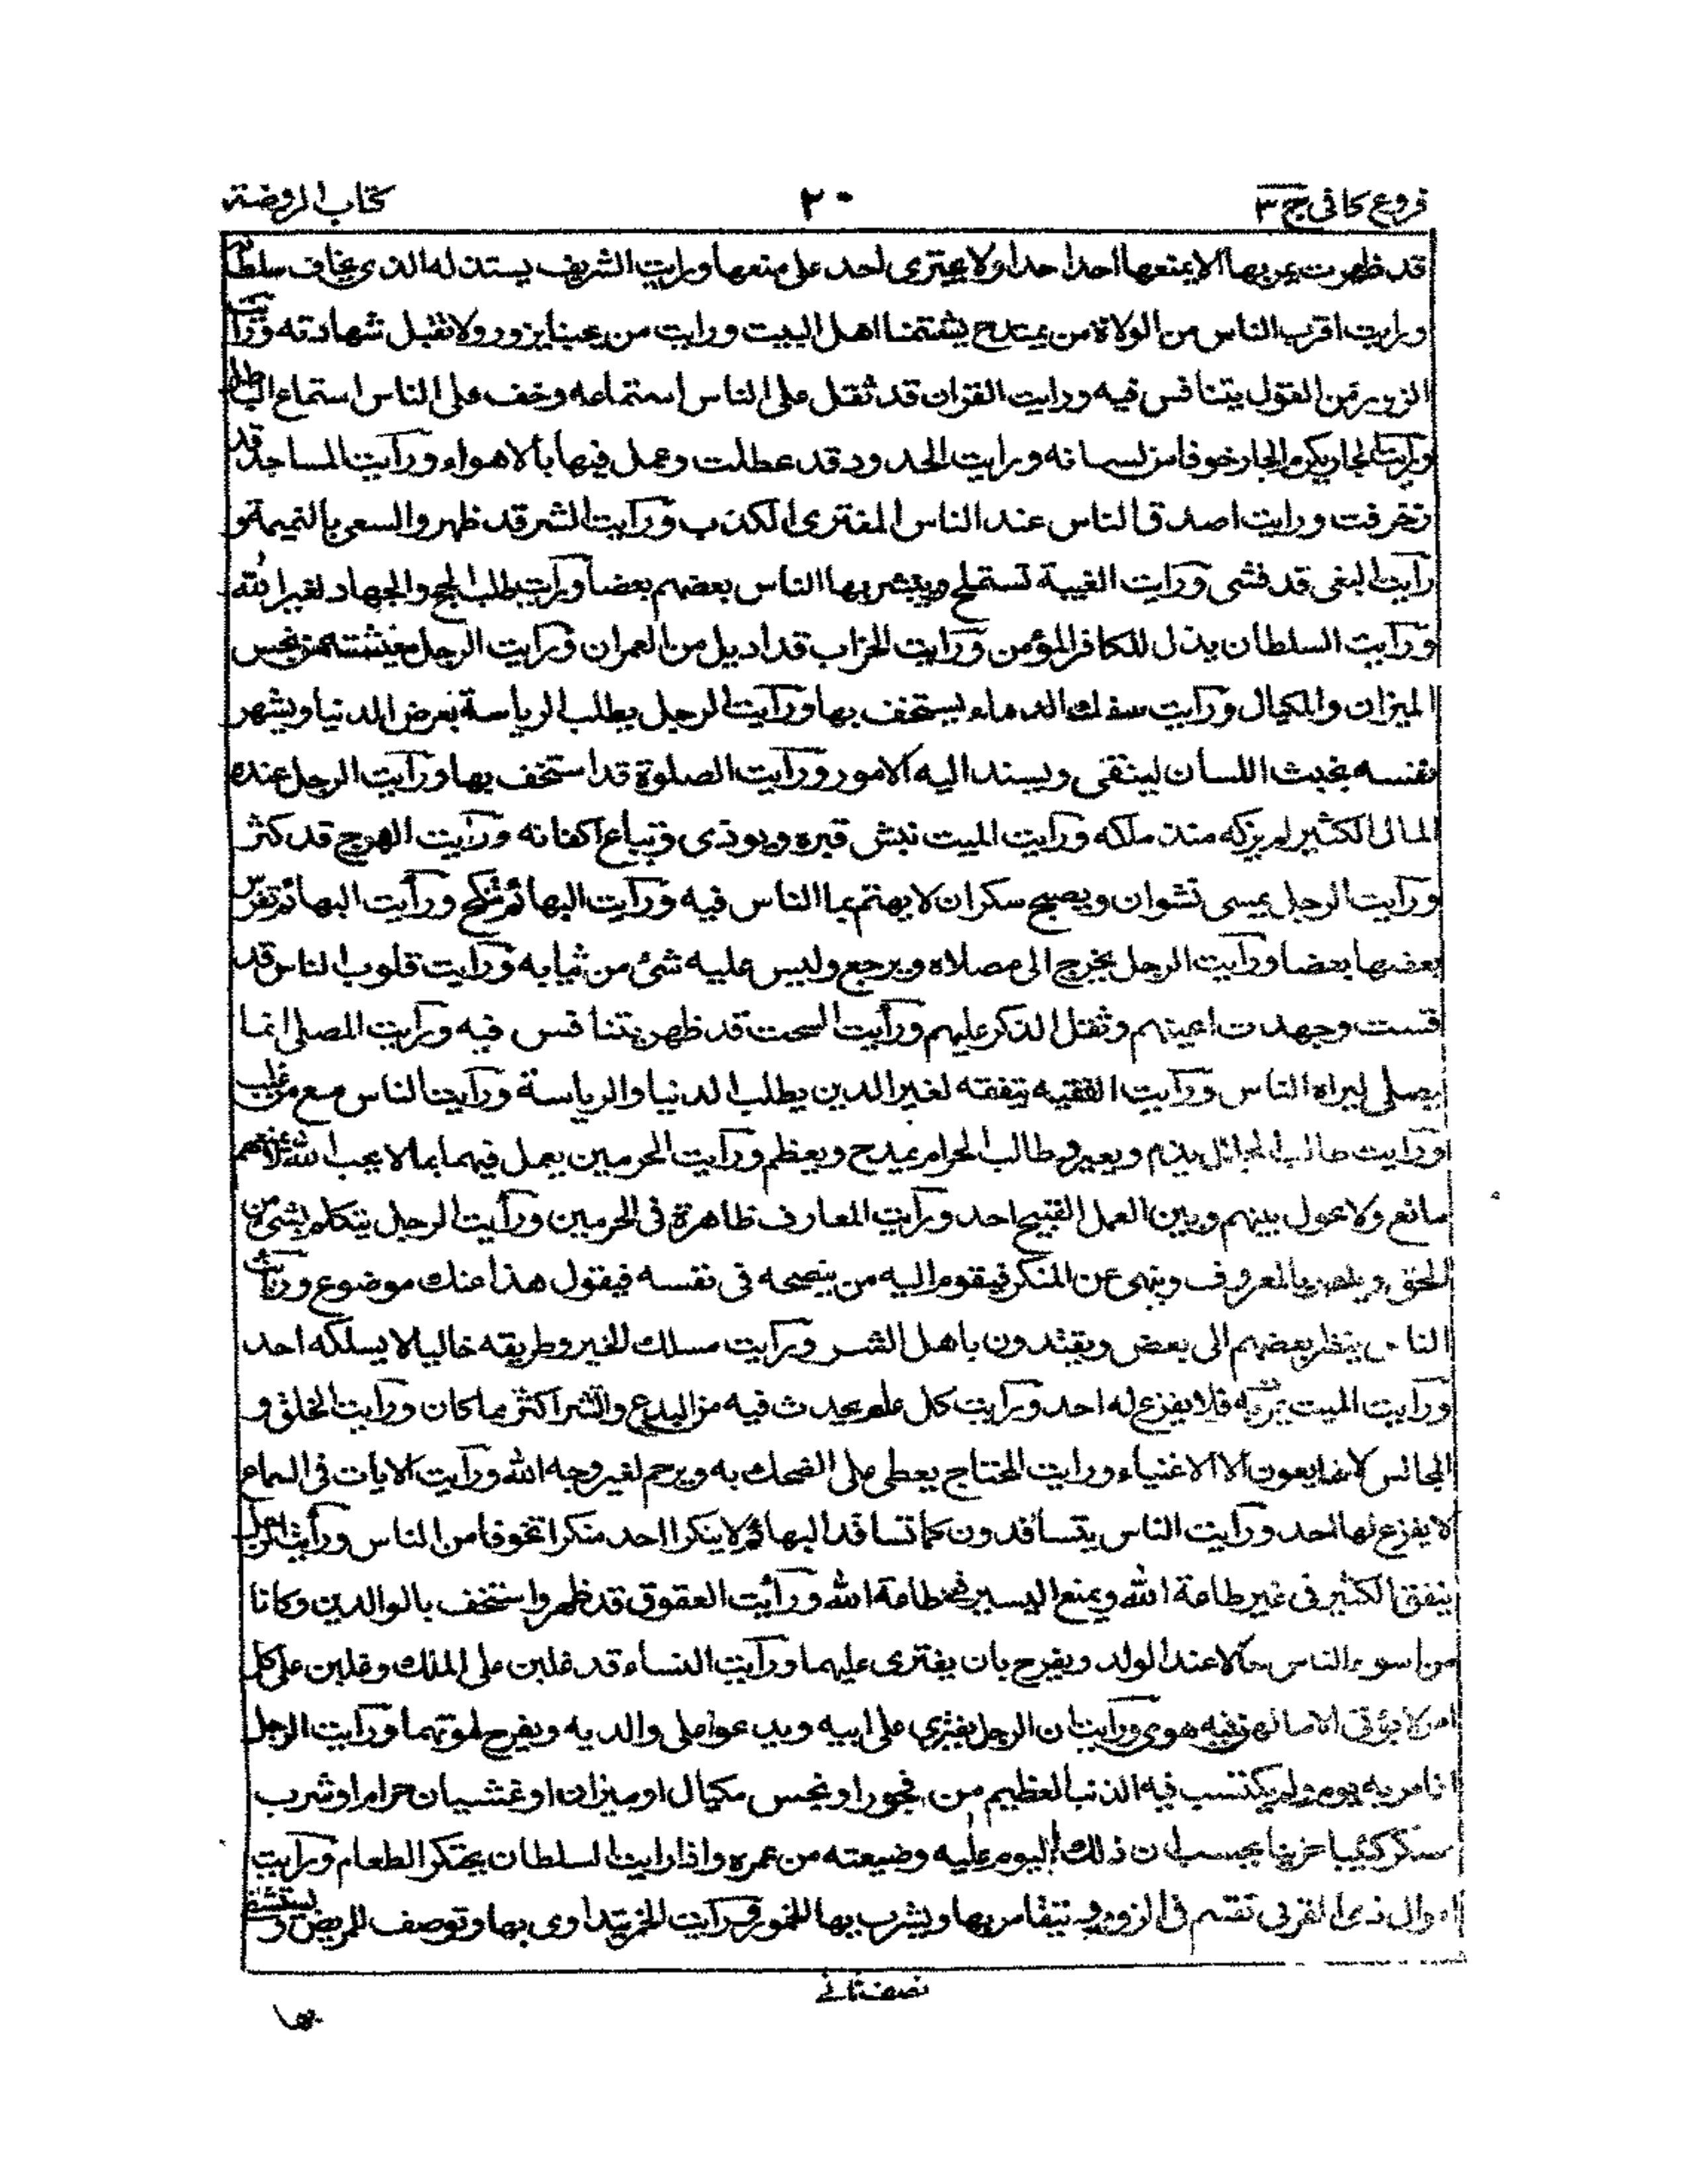 فروع كافى ج ٣
٢٠
كتاب الروضة
قد ظهرت يمر بها لا يمنعها احد احدا ولا يجترى احد على منعها ورايت الشريف يستذله الذى يخاف سلطانه
ورايت اقرب الناس من الولاة من يمتدح بشتمنا اهل البيت ورايت من يحبنا يزور ولا تقبل شهادته ورايت
الزور من القول يتنافس فيه ورايت القران قد ثقل على الناس استماعه وخف على الناس استماع الباطل
ورايت الجار يكرم الجار خوفا من لسانه ورايت الحدود قد عطلت وعمل فيها بالاهواء ورأيت المساجد قد
زخرفت ورايت اصدق الناس عند الناس المفترى الكذب ورأيت الشر قد ظهر والسعى بالنميمة و
رأيت البغى قد فشى ورايت الغيبة تستملح ويبشر بها الناس بعضهم بعضا ورأيت طلب الحج والجهاد لغير الله
ورأيت السلطان يذل للكافر المؤمن ورأيت الخراب قد اديل من العمران ورأيت الرجل معيشته من بخس
الميزان والمكيال ورأيت سفك الدماء يستخف بها ورأيت الرجل يطلب الرياسة لعرض الدنيا ويشهر
نفسه بخبث اللسان ليتقى ويسند اليه الامور ورأيت الصلوة قد استخف بها ورأيت الرجل عنده
المال الكثير لم يزكه منذ ملكه ورأيت الميت نبش قبره ويوذى وتباع اكفانه ورأيت الهرج قد كثر
ورأيت الرجل يمسى نشوان ويصبح سكران لا يهتم بما الناس فيه ورأيت البهائم تنكح ورأيت البهائم تفرس
بعضها بعضا ورأيت الرجل يخرج الى مصلاه ويرجع وليس عليه شئ من ثيابه ورأيت قلوب الناس قد
قست وجمدت اعينهم وثقل الذكر عليهم ورأيت السحت قد ظهر يتنافس فيه ورأيت المصلى انما
يصلى ليراه الناس ورأيت الفقيه يتفقه لغير الدين يطلب الدنيا والرياسة ورأيت الناس مع من غلب
ورأيت طالب الحلال يذم ويعير وطالب الحرام يمدح ويعظم ورأيت الحرمين يعمل فيهما بما لا يحب الله لا يمنعهم
مانع ولا يحول بينهم وبين العمل القبيح احد ورأيت المعازف ظاهرة فى الحرمين ورأيت الرجل يتكلم بشئ من
الحق ويامر بالمعروف وينهى عن المنكر فيقوم اليه من ينصحه فى نفسه فيقول هذا عنك موضوع ورأيت
الناس ينظر بعضهم الى بعض ويقتدون باهل الشر ورأيت مسلك الخير وطريقه خاليا لا يسلكه احد
ورأيت الميت يمر به فلا يفزع له احد ورأيت كل عام يحدث فيه من البدع والشر اكثر مما كان ورأيت الخلق و
المجالس لا يتابعون الا الاغنياء ورايت المحتاج يعطى على الضحك به ويرحم لغير وجه الله ورأيت الايات فى السماء
لا يفزع لها احد ورأيت الناس يتسافدون كما تسافد البهائم لا ينكر احد منكرا تخوفا من الناس ورأيت الرجل
ينفق الكثير فى غير طاعة الله ويمنع اليسير فى طاعة الله ورأيت العقوق قد ظهر واستخف بالوالدين وكانا
من اسوء الناس حالا عند الولد ويفرح بان يفترى عليهما ورأيت النساء قد غلبن على الملك وغلبن على كل
امر لا يؤتى الا ما لهن فيه هوى ورأيت ابن الرجل يفترى على ابيه ويدعو على والديه ويفرح لموتهما ورأيت الرجل
اذا مر به يوم ولم يكتسب فيه الذنب العظيم من فجور او بخس مكيال او ميزان او غشيان حرام او شرب
مسكر كئيبا حزينا يحسب ان ذلك اليوم عليه وضيعته من عمره واذا رايت السلطان يحتكر الطعام ورأيت
اموال ذى القربى تقسم فى الزور ويتقامر بها ويشرب بها الخمور ورأيت الخمر يتداوى بها وتوصف للمريض ويستشفى
نصف ثانى
بها